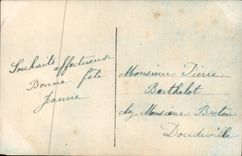 Souhaits affectueux
Bonne fête
Jeanne
Monsieur Pierre
Berthelot
chez Monsieur Breton
Doudeville